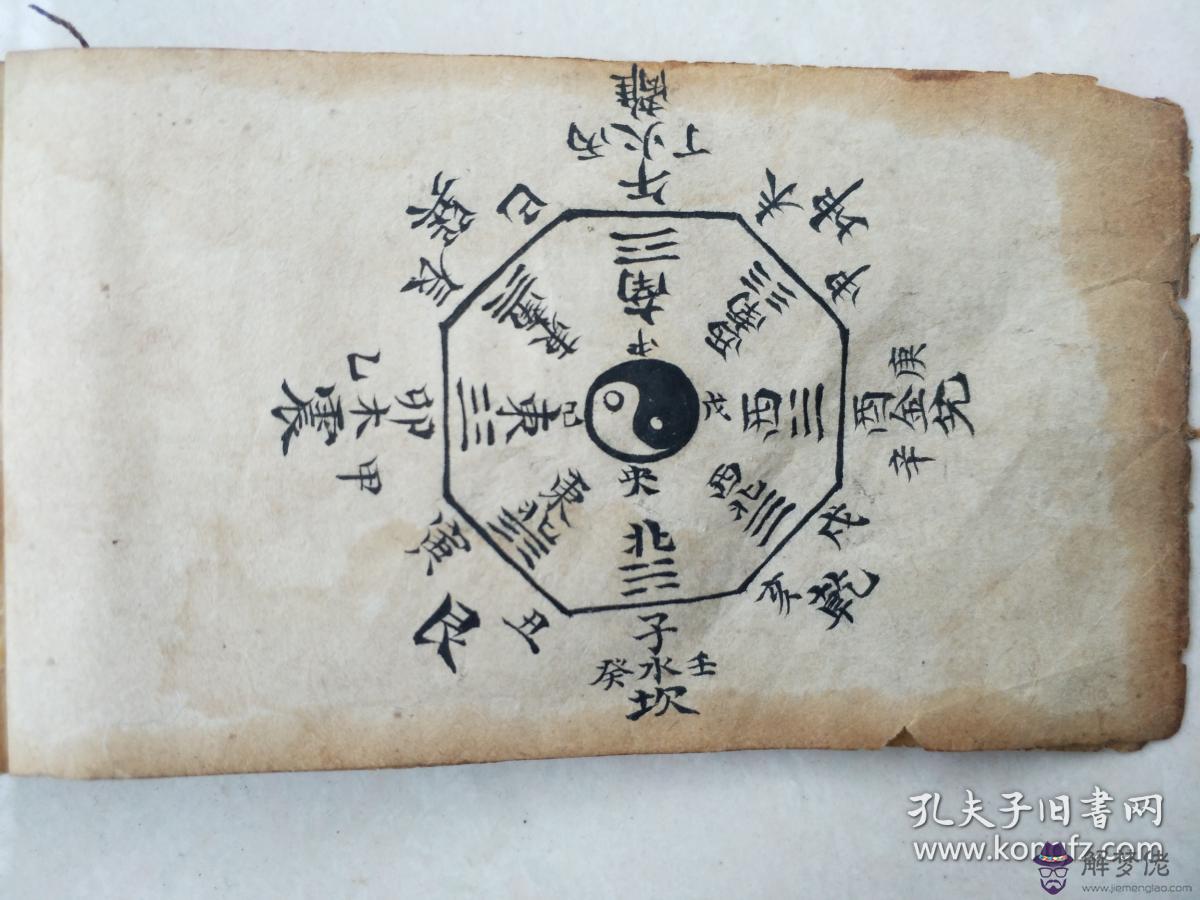 離
丙火丁
午
巽
巳
辰
未
坤
申
南
東南
西南
中
乙
震木卯
甲
東
己
戊
西
酉金兌
庚
辛
央
東北
西北
北
寅
艮
丑
戌
亥
乾
子
癸水壬
坎
孔夫子旧书网
www.kongfz.com
解梦佬
www.jiemenglao.com